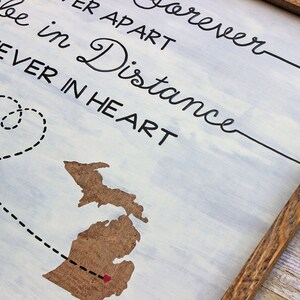 Forever
APART
be in Distance
EVER IN HEART